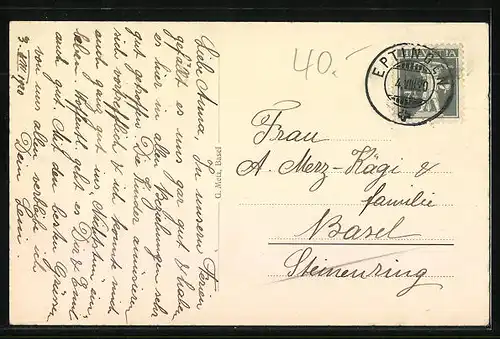 Liebe Anna, In unsern Ferien
gefällt es uns gar gut & habe
es hier in allen Beziehungen sehr
gut getroffen. Die Kinder amüsieren
sich vortrefflich & ich konnte mich
auch ganz gut ins
leben. Hoffentl. geht es Dir & Emil
auch gut. Mit den besten Grüssen
von uns allen verbleibe ich
3. VIII. 1920 Dein
G. Metz, Basel
40.-
HELVETIA
EPTINGEN
4.VIII.20
Frau
A. Merz-Kägi &
familie
Basel
Steinenring